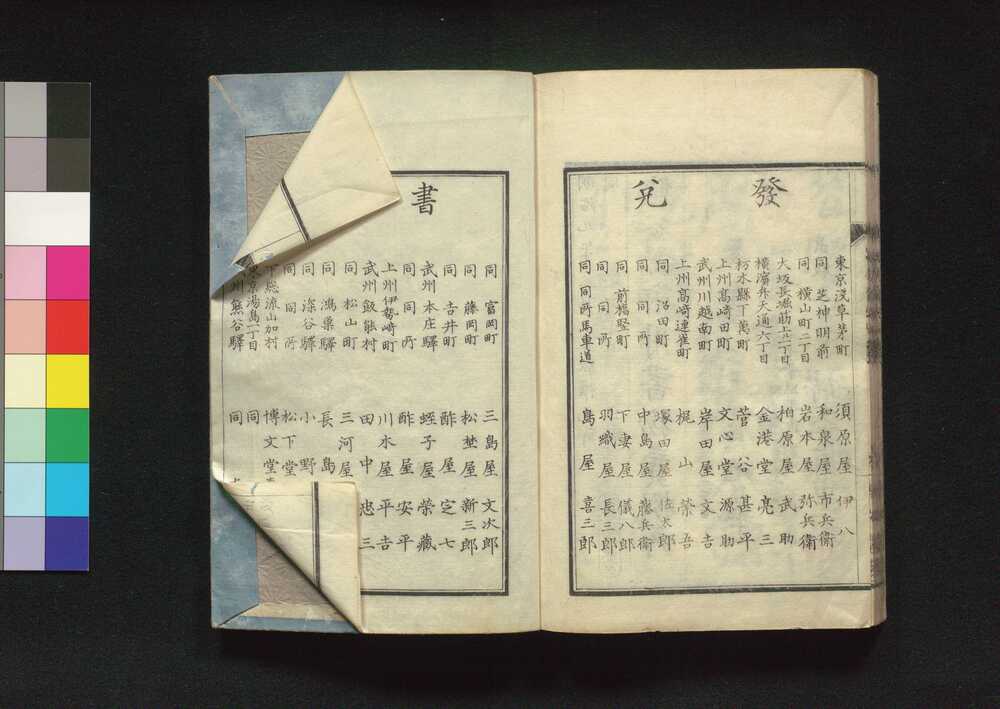 發兌
東京淺草茅町 須原屋伊八
同 芝神明前 和泉屋市兵衛
同 横山町二丁目 岩本屋弥兵衛
大坂長堀筋上二丁目 柏原屋武助
横濱弁天通六丁目 金港堂亮三
栃木縣下萬町 菅谷甚平
上州高崎田町 文心堂源助
武州川越南町 岸田屋文吉
上州高崎連雀町 梶山榮吾
同 沼田町 塚田屋佐太郎
同 同所 中島屋藤兵衛
同 前橋竪町 下妻屋儀八郎
同 同所 羽織屋長三郎
同 同所馬車道 島屋喜三郎
書
同 富岡町 三島屋文次郎
同 藤岡町 松埜屋新三郎
同 吉井町 酢屋定七
武州 本庄驛 蛭子屋榮藏
同 同所 酢屋安平
上州伊勢崎町 川水屋平吉
武州飯能村 田中忠三
同 松山町 三河屋
同 鴻巣驛 長島
同 深谷驛 小野
同 同所 松下堂
下総流山加村 博文堂
東京湯島一丁目 同
州熊谷驛 同